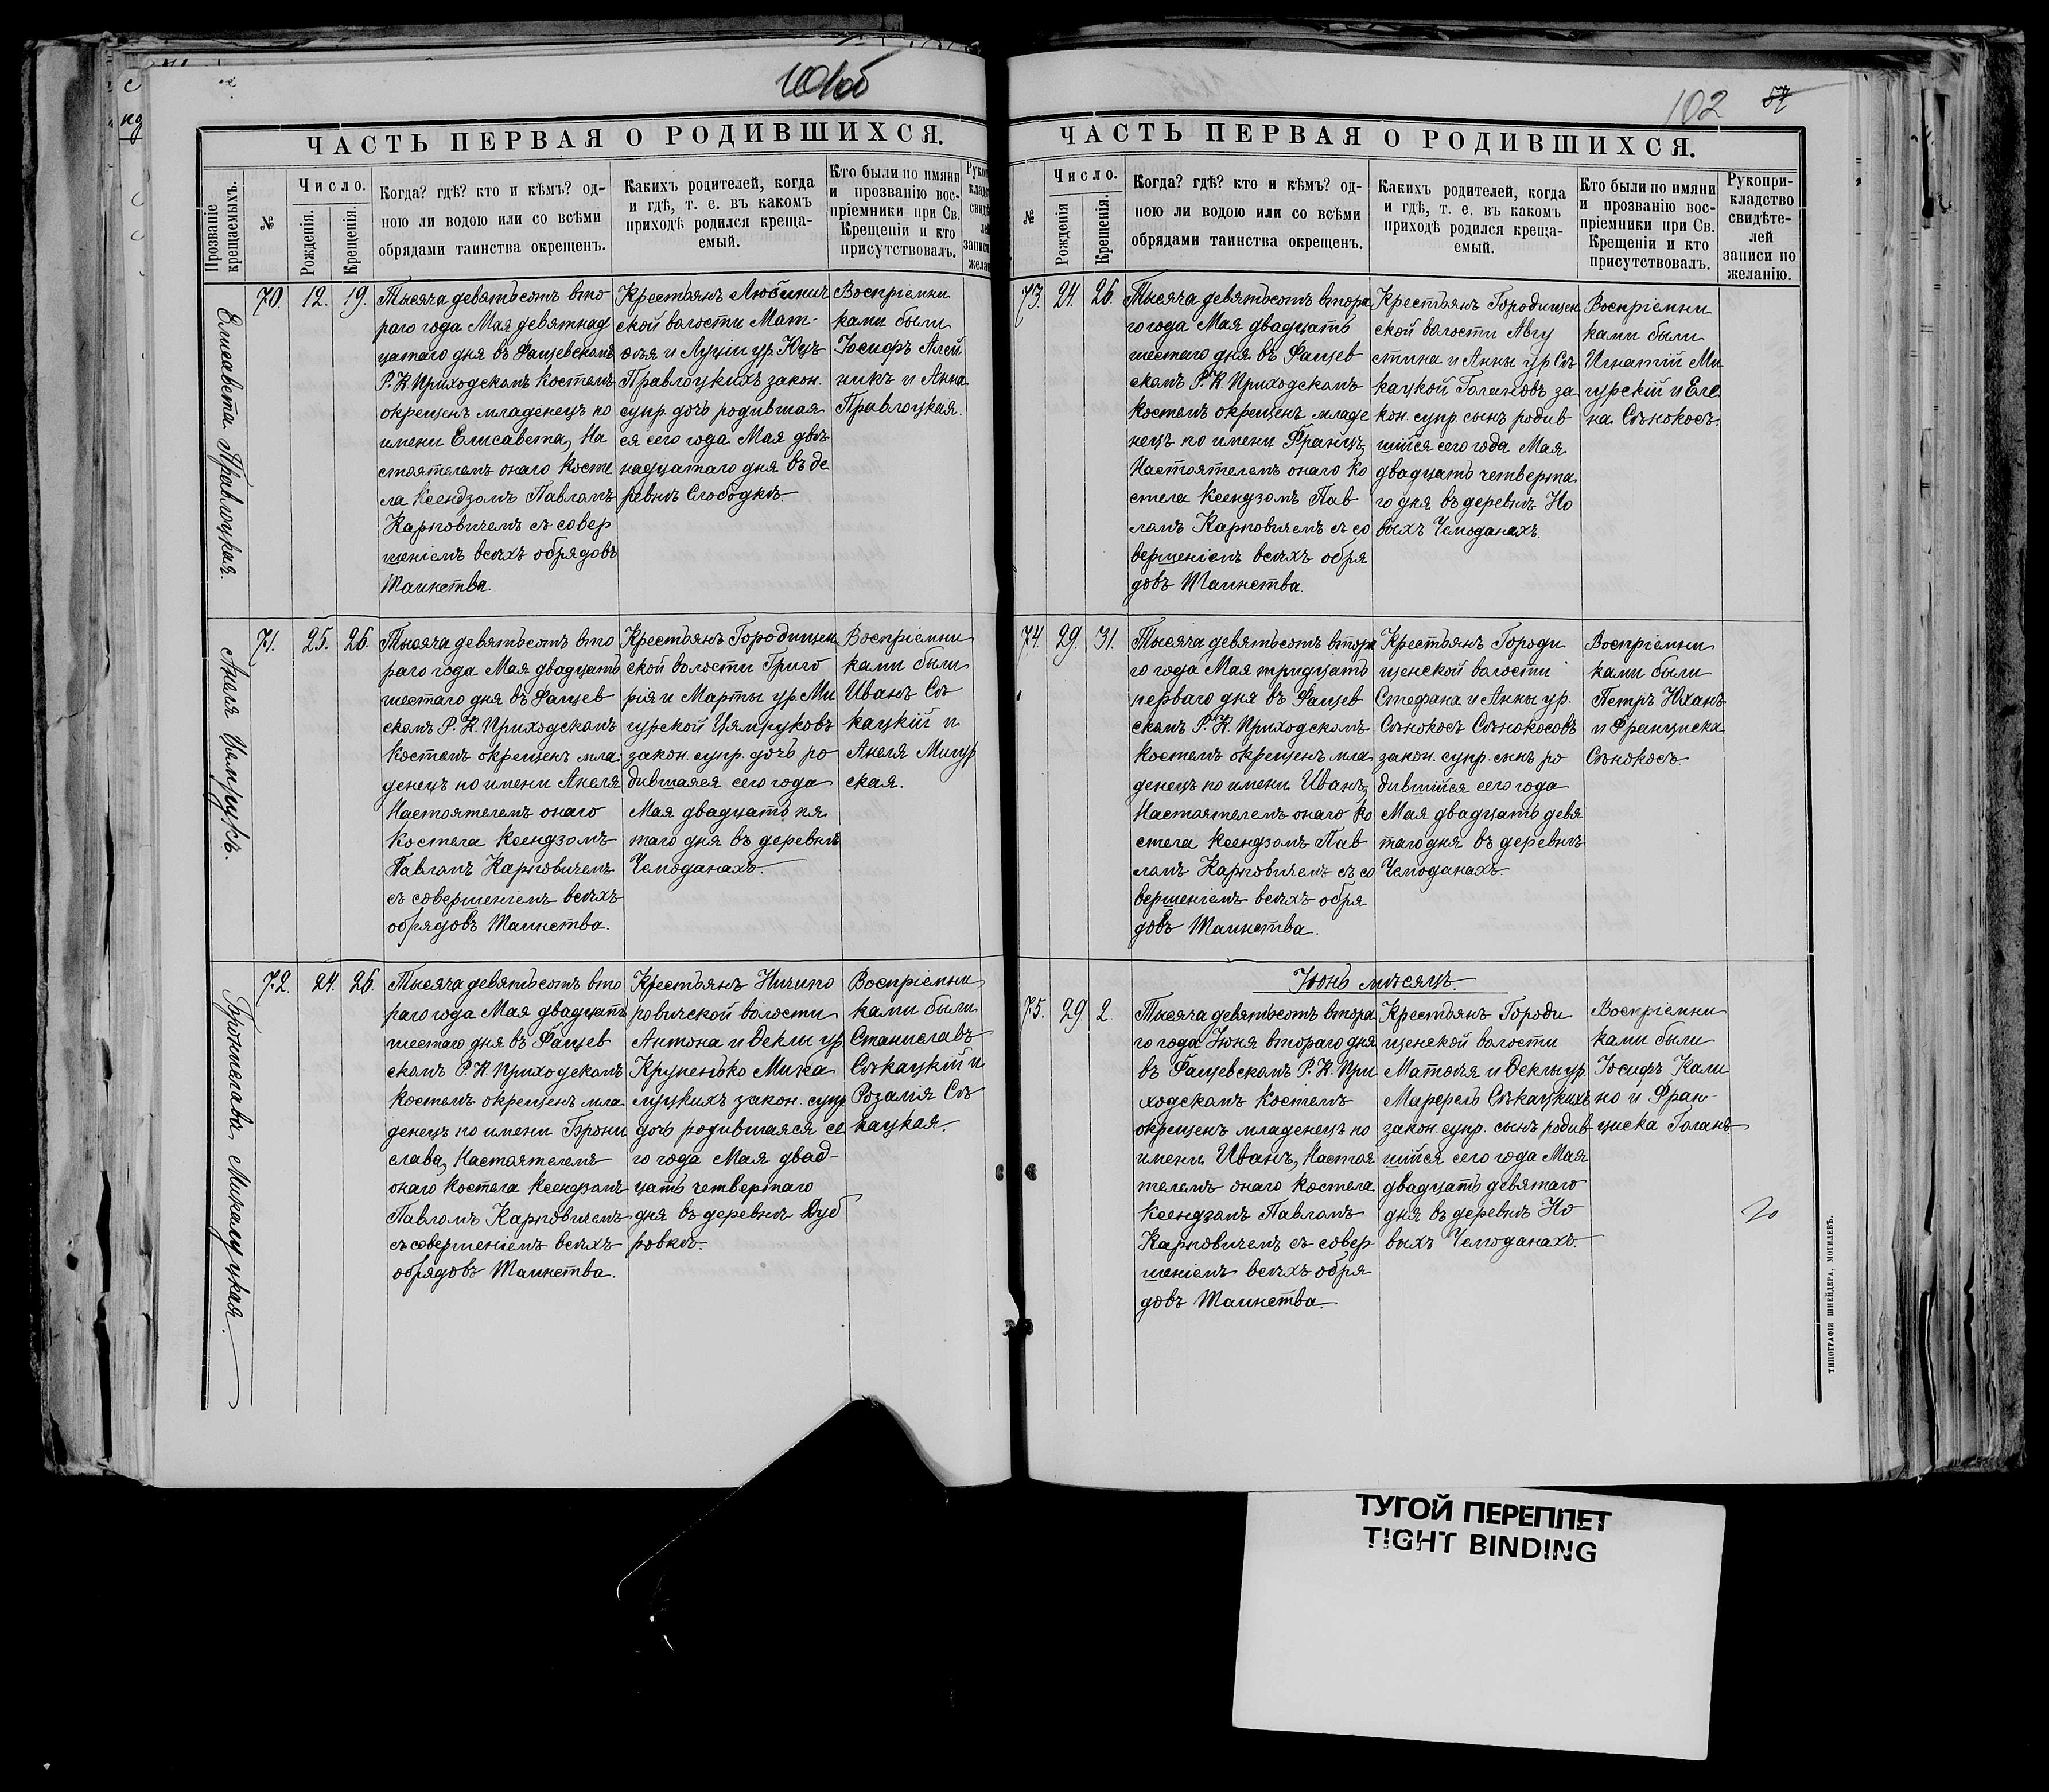 101об
ЧАСТЬ ПЕРВАЯ О РОДИВШИХСЯ.
Прозваніе крещаемыхъ.
№
Число.
Рожденія.
Крещенія.
Когда? гдѣ? кто и кѣмъ? од-
ною ли водою или со всѣми
обрядами таинства окрещенъ.
Какихъ родителей, когда
и гдѣ, т. е. въ какомъ
приходѣ родился креща-
емый.
Кто были по имяни
и прозванію вос-
пріемники при Св.
Крещеніи и кто
присутствовалъ.
Елисавета Правлоцкая.
70. 12. 19.
Тысяча девятьсотъ вто
раго года Мая девятнад
цатаго дня въ Фащевскомъ
Р. К. Приходскомъ костелѣ
окрещенъ младенецъ по
имени Елисавета, На
стоятелемъ онаго Косте
ла Ксендзомъ Павломъ
Карповичемъ съ совер
шеніемъ всѣхъ обрядовъ
Таинства.
Крестьянъ Любинич
ской волости Мат-
ѳѣя и Луціи ур. Куц-
Правлоцкихъ закон.
супр. дочь родившая
ся сего года Мая двѣ
надцатаго дня въ де
ревнѣ Слободкѣ
Воспріемни
ками были
Іосифъ Алей
никъ и Анна
Правлоцкая.
Анеля Цямрукъ.
71. 25. 26.
Тысяча девятьсотъ вто
раго года Мая двадцать
шестаго дня въ Фащев
скомъ Р. К. Приходскомъ
Костелѣ окрещенъ мла
денецъ по имени Анеля
Настоятелемъ онаго
Костела Ксендзомъ
Павломъ Карповичемъ
съ совершеніемъ всѣхъ
обрядовъ Таинства.
Крестьянъ Городищен
ской волости Григо
рія и Марты ур. Ми
гурской Цямруковъ
закон. супр. дочь ро
дившаяся сего года
Мая двадцать пя
таго дня въ деревнѣ
Чемоданахъ.
Воспріемни
ками были
Иванъ Сѣ
кацкій и
Анеля Мигур
ская.
Бронислава Микалуцкая.
72. 24. 26.
Тысяча девятьсотъ вто
раго года Мая двадцать
шестаго дня въ Фащев
скомъ Р. К. Приходскомъ
Костелѣ окрещенъ мла
денецъ по имени Брони
слава, Настоятелемъ
онаго Костела Ксендзомъ
Павломъ Карповичемъ
съ совершеніемъ всѣхъ
обрядовъ Таинства.
Крестьянъ Ничипо
ровичской волости
Антона и Ѳеклы ур.
Крупенько Мика
луцкихъ закон. супр
дочь родившаяся се
го года Мая двад-
цать четвертаго
дня въ деревнѣ Дуб
ровкѣ.
Воспріемни
ками были
Станиславъ
Сѣкацкій и
Розалія Сѣ
кацкая.
102 57
ЧАСТЬ ПЕРВАЯ О РОДИВШИХСЯ.
№
Число.
Рожденія
Крещенія.
Когда? гдѣ? кто и кѣмъ? од-
ною ли водою или со всѣми
обрядами таинства окрещенъ.
Какихъ родителей, когда
и гдѣ, т. е. въ какомъ
приходѣ родился креща-
емый.
Кто были по имяни
и прозванію вос-
пріемники при Св.
Крещеніи и кто
присутствовалъ.
Рукопри-
кладство
свидѣте-
лей
записи по
желанію.
73. 24. 26.
Тысяча девятьсотъ втора
го года Мая двадцать
шестаго дня въ Фащев
скомъ Р. К. Приходскомъ
Костелѣ окрещенъ младе
нецъ по имени Францъ,
Настоятелемъ онаго Ко
стела Ксендзомъ Пав
ломъ Карповичемъ съ со
вершеніемъ всѣхъ обря
довъ Таинства.
Крестьянъ Городищен
ской волости Авгу
стина и Анны ур. Сѣ
кацкой Голановъ за
кон. супр. сынъ родив
шійся сего года Мая
двадцать четверта
го дня въ деревнѣ Но
выхъ Чемоданахъ.
Воспріемни
ками были
Игнатій Ми
гурскій и Еле
на Сѣнокосъ.
74. 29. 31.
Тысяча девятьсотъ втора
го года Мая тридцать
перваго дня въ Фащев
скомъ Р. К. Приходскомъ
Костелѣ окрещенъ мла
денецъ по имени Иванъ,
Настоятелемъ онаго Ко
стела Ксендзомъ Пав
ломъ Карповичемъ съ со
вершеніемъ всѣхъ обря
довъ Таинства.
Крестьянъ Городи
щенской волости
Стефана и Анны ур.
Сѣнокосъ Сѣнокосовъ
закон. супр. сынъ ро
дившійся сего года
Мая двадцать девя
таго дня въ деревнѣ
Чемоданахъ.
Воспріемни
ками были
Петръ Юханъ
и Франциска
Сѣнокосъ.
Іюнь мѣсяцъ.
75. 29 2.
Тысяча девятьсотъ втора
го года Іюня втораго дня
въ Фащевскомъ Р. К. При
ходскомъ Костелѣ
окрещенъ младенецъ по
имени Иванъ, Настоя
телемъ онаго Костела
Ксендзомъ Павломъ
Карповичемъ съ совер
шеніемъ всѣхъ обря
довъ Таинства.
Крестьянъ Городи
щенской волости
Матѳея и Ѳеклы ур
Марфель Сѣкацкихъ
закон. супр. сынъ родив
шійся сего года Мая
двадцать девятаго
дня въ деревнѣ Но
выхъ Чемоданахъ.
Воспріемни
ками были
Іосифъ Кали
но и Фран-
циска Голанъ
ТИПОГРАФІЯ ШНЕЙДЕРА, МОГИЛЕВЪ.
ТУГОЙ ПЕРЕПЛЕТ
TIGHT BINDING